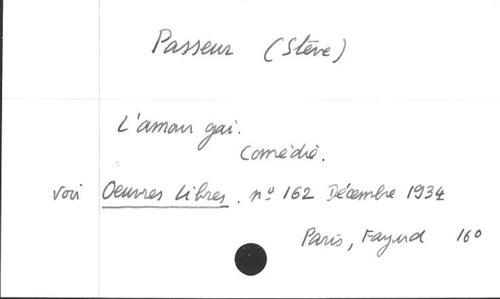 Passeur (Stève)
L'amour gai.
Comédie.
voir Oeuvres Libres. nº 162 Décembre 1934
Paris, Fayard 16º